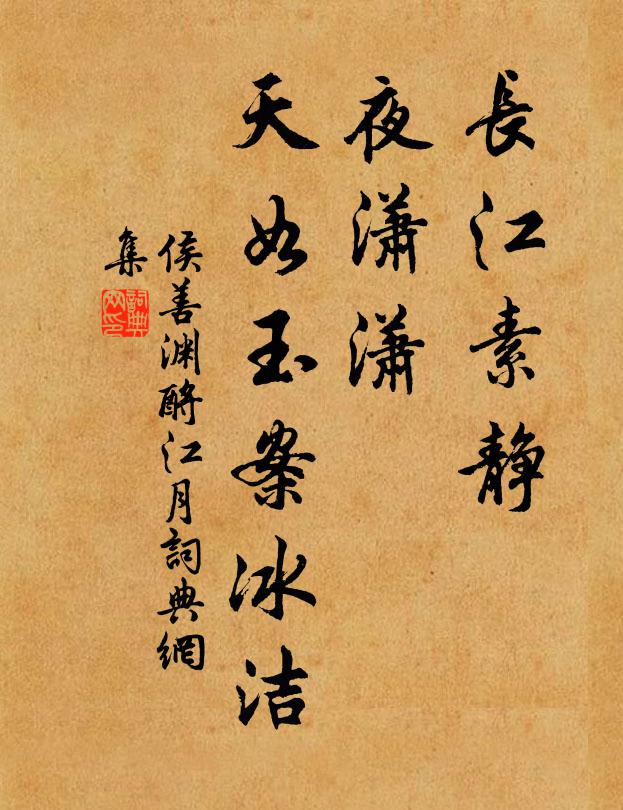 長江素靜
夜瀟瀟
天如玉案冰潔
侯善渊酹江月詞典網
集
詞典
網印